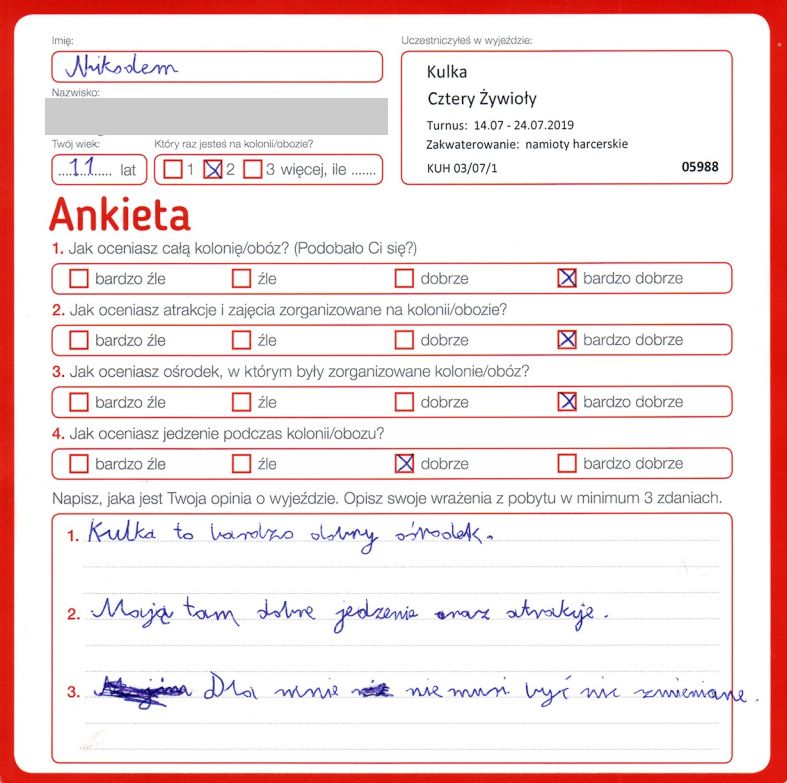 Imię:
Nikodem
Nazwisko:
Twój wiek:
11 lat
Który raz jesteś na kolonii/obozie?
1 2 3 więcej, ile .......
Uczestniczyłeś w wyjeździe:
Kulka
Cztery Żywioły
Turnus: 14.07 - 24.07.2019
Zakwaterowanie: namioty harcerskie
KUH 03/07/1 05988
Ankieta
1. Jak oceniasz całą kolonię/obóz? (Podobało Ci się?)
bardzo źle źle dobrze bardzo dobrze
2. Jak oceniasz atrakcje i zajęcia zorganizowane na kolonii/obozie?
bardzo źle źle dobrze bardzo dobrze
3. Jak oceniasz ośrodek, w którym były zorganizowane kolonie/obóz?
bardzo źle źle dobrze bardzo dobrze
4. Jak oceniasz jedzenie podczas kolonii/obozu?
bardzo źle źle dobrze bardzo dobrze
Napisz, jaka jest Twoja opinia o wyjeździe. Opisz swoje wrażenia z pobytu w minimum 3 zdaniach.
1. Kulka to bardzo dobry ośrodek.
2. Mają tam dobre jedzenie oraz atrakcje.
3. Dla mnie nie musi być nic zmieniane.